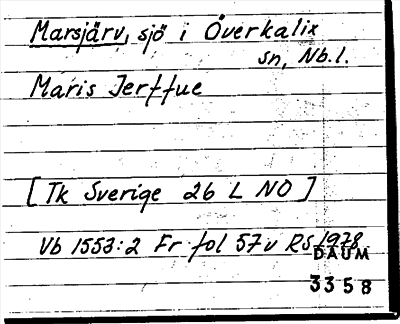 Marsjärv, sjö i Överkalix
sn, Nb.l.
Maris Jerffue
[Tk Sverige 26 L NO]
Vb 1553:2 Fr fol 57v RS 1978
DAUM
3358